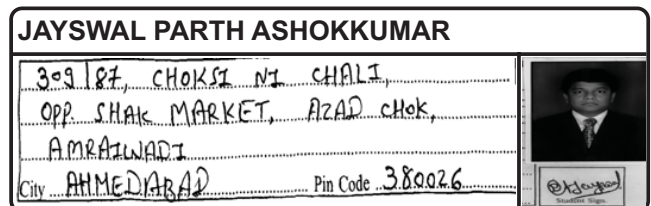 JAYSWAL PARTH ASHOKKUMAR
309/87, CHOKSI NI CHALI,
OPP. SHAK MARKET, AZAD CHOK,
AMRAIWADI
City AHMEDABAD Pin Code 380026
Student Sign.